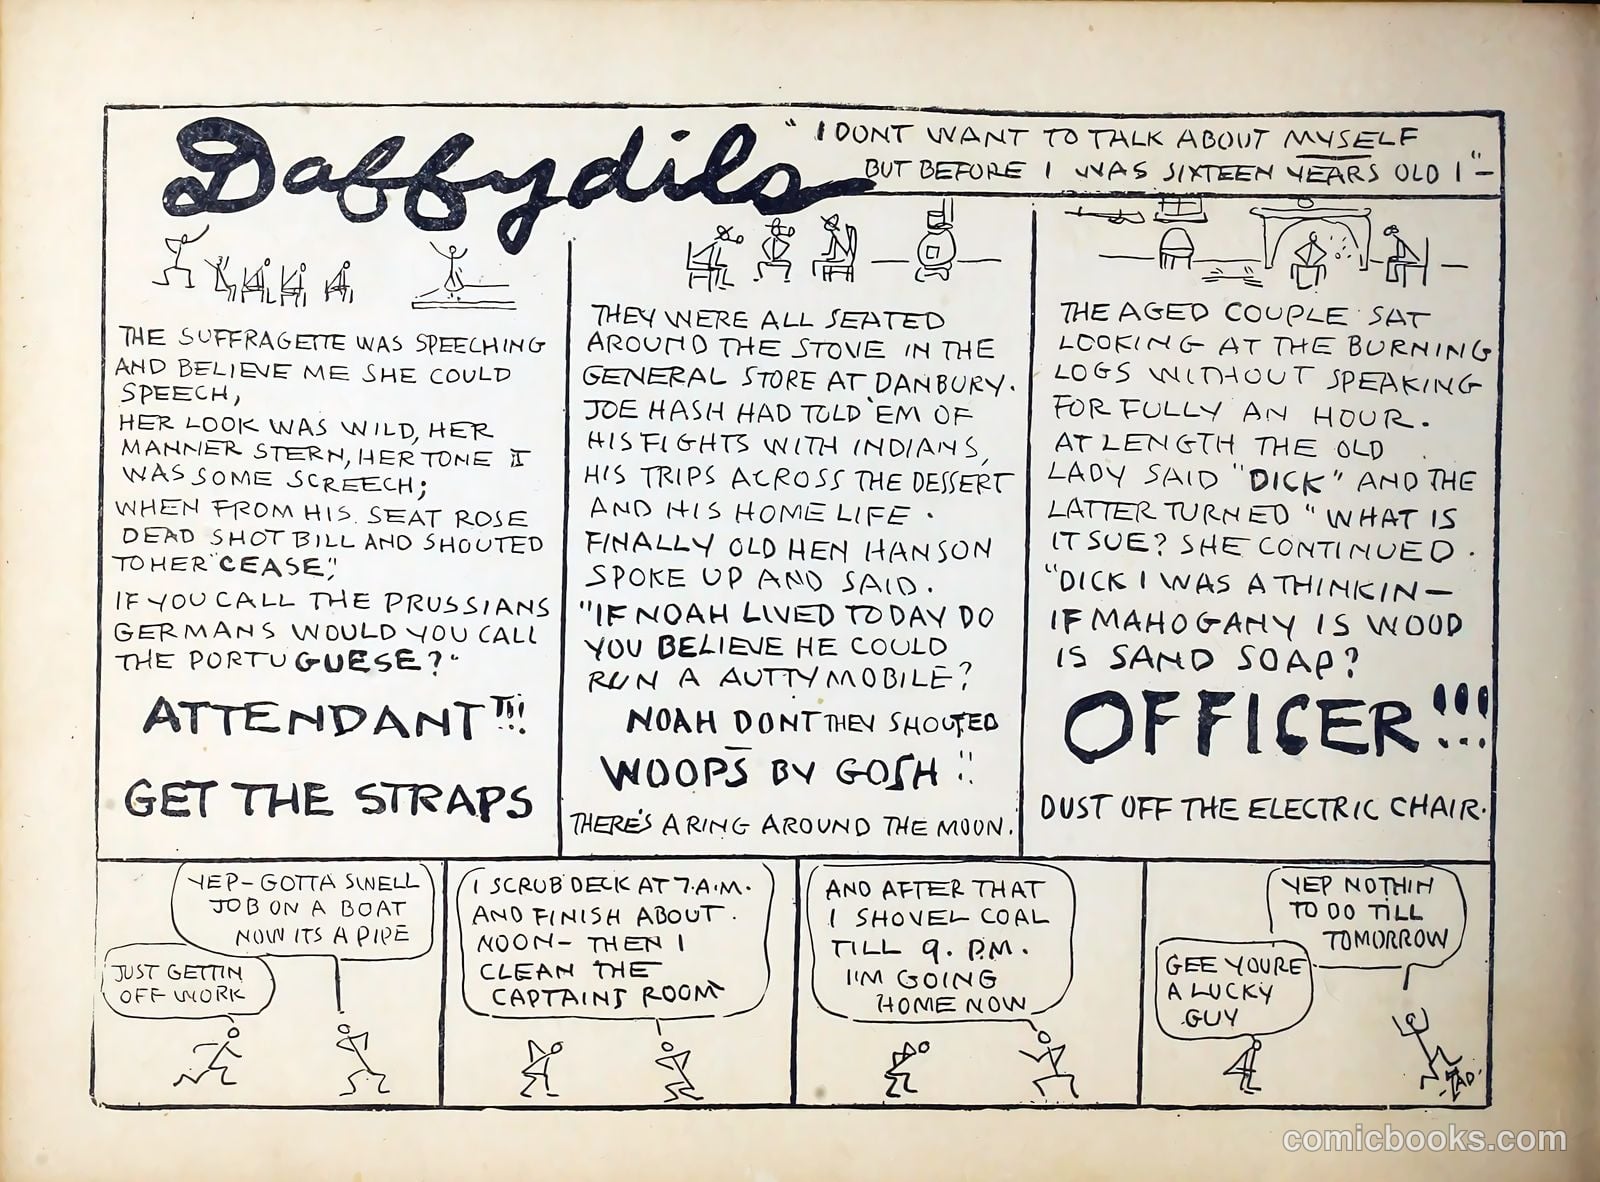 Daffydils
"I DONT WANT TO TALK ABOUT MYSELF
BUT BEFORE I WAS SIXTEEN YEARS OLD I"—
THE SUFFRAGETTE WAS SPEECHING
AND BELIEVE ME SHE COULD
SPEECH,
HER LOOK WAS WILD, HER
MANNER STERN, HER TONE IT
WAS SOME SCREECH;
WHEN FROM HIS SEAT ROSE
DEAD SHOT BILL AND SHOUTED
TO HER "CEASE",
IF YOU CALL THE PRUSSIANS
GERMANS WOULD YOU CALL
THE PORTUGUESE?"
ATTENDANT!!!
GET THE STRAPS
THEY WERE ALL SEATED
AROUND THE STOVE IN THE
GENERAL STORE AT DANBURY.
JOE HASH HAD TOLD 'EM OF
HIS FIGHTS WITH INDIANS,
HIS TRIPS ACROSS THE DESSERT
AND HIS HOME LIFE.
FINALLY OLD HEN HANSON
SPOKE UP AND SAID.
"IF NOAH LIVED TODAY DO
YOU BELIEVE HE COULD
RUN A AUTTYMOBILE?
NOAH DONT THEY SHOUTED
WOOPS BY GOSH!!
THERE'S A RING AROUND THE MOON.
THE AGED COUPLE SAT
LOOKING AT THE BURNING
LOGS WITHOUT SPEAKING
FOR FULLY AN HOUR.
AT LENGTH THE OLD
LADY SAID "DICK" AND THE
LATTER TURNED "WHAT IS
IT SUE? SHE CONTINUED.
"DICK I WAS A THINKIN—
IF MAHOGANY IS WOOD
IS SAND SOAP?
OFFICER!!!
DUST OFF THE ELECTRIC CHAIR.
JUST GETTIN
OFF WORK
YEP—GOTTA SWELL
JOB ON A BOAT
NOW ITS A PIPE
I SCRUB DECK AT 7.A.M.
AND FINISH ABOUT.
NOON— THEN I
CLEAN THE
CAPTAINS ROOM
AND AFTER THAT
I SHOVEL COAL
TILL 9. P.M.
I'M GOING
HOME NOW
GEE YOURE
A LUCKY
GUY
YEP NOTHIN
TO DO TILL
TOMORROW
TAD
comicbooks.com